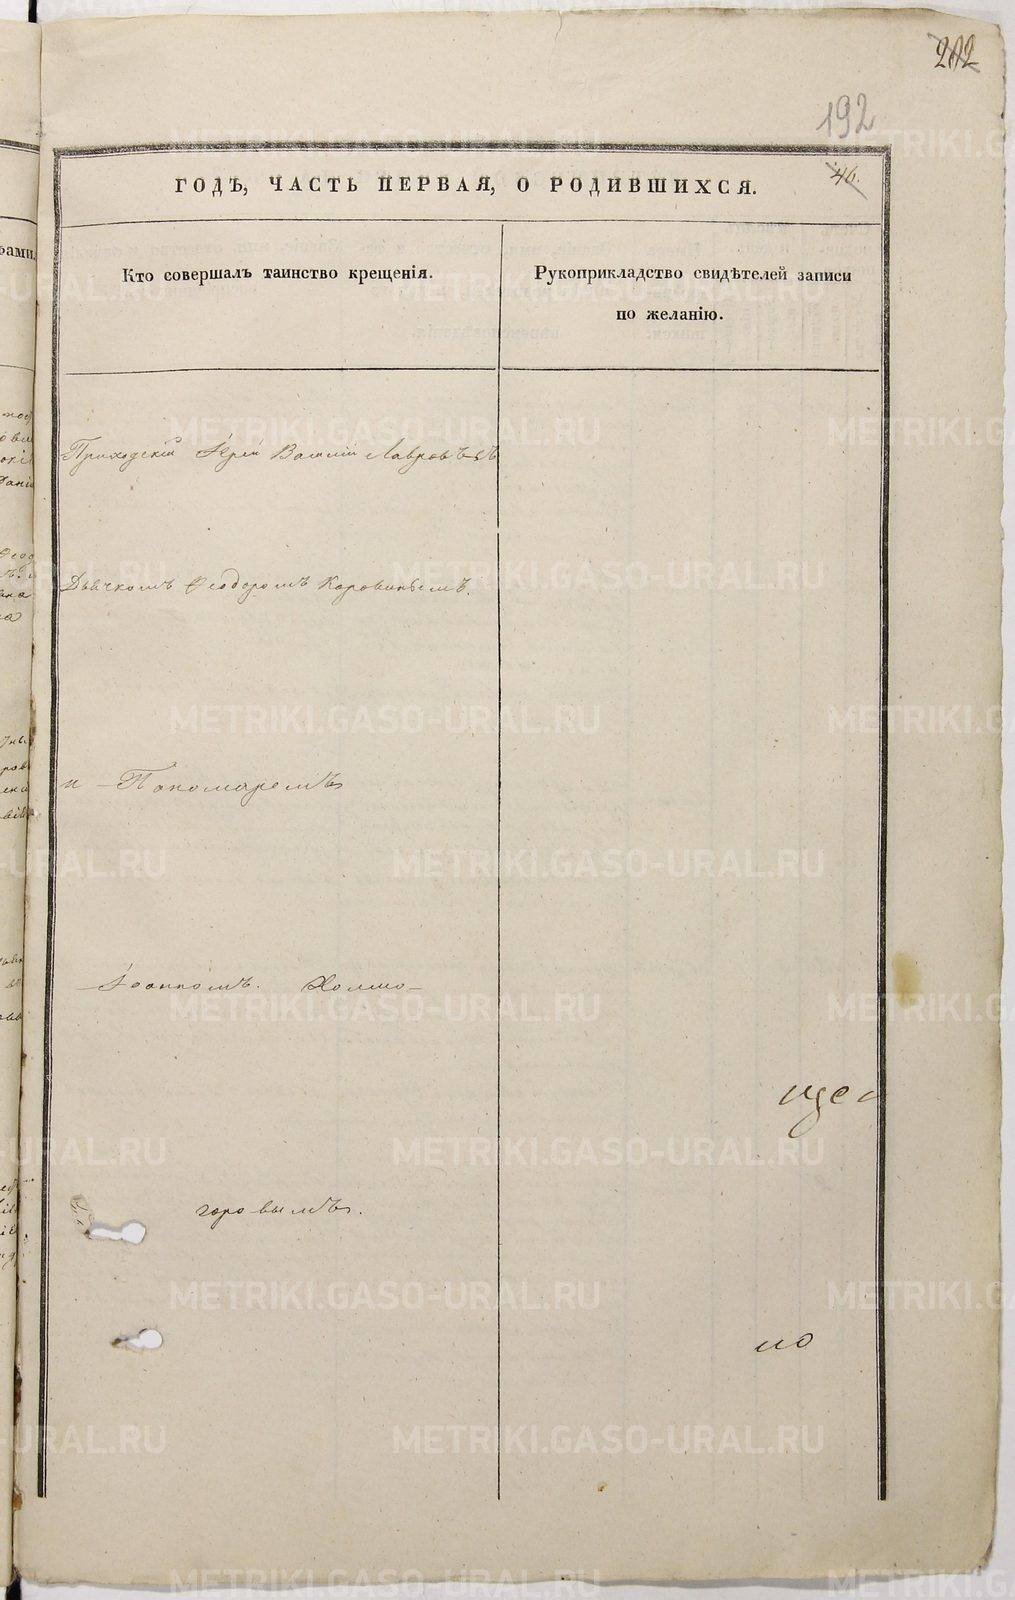 202
192
46.
ГОДЪ, ЧАСТЬ ПЕРВАЯ, О РОДИВШИХСЯ.
Кто совершалъ таинство крещенія.
Рукоприкладство свидѣтелей записи
по желанію.
Приходскій Іерей Василій Лавровъ съ
Дьячкомъ Ѳеодоромъ Коровинымъ.
и Пономаремъ
Іоанномъ. Холмо-
горовымъ.
по
METRIKI.GASO-URAL.RU